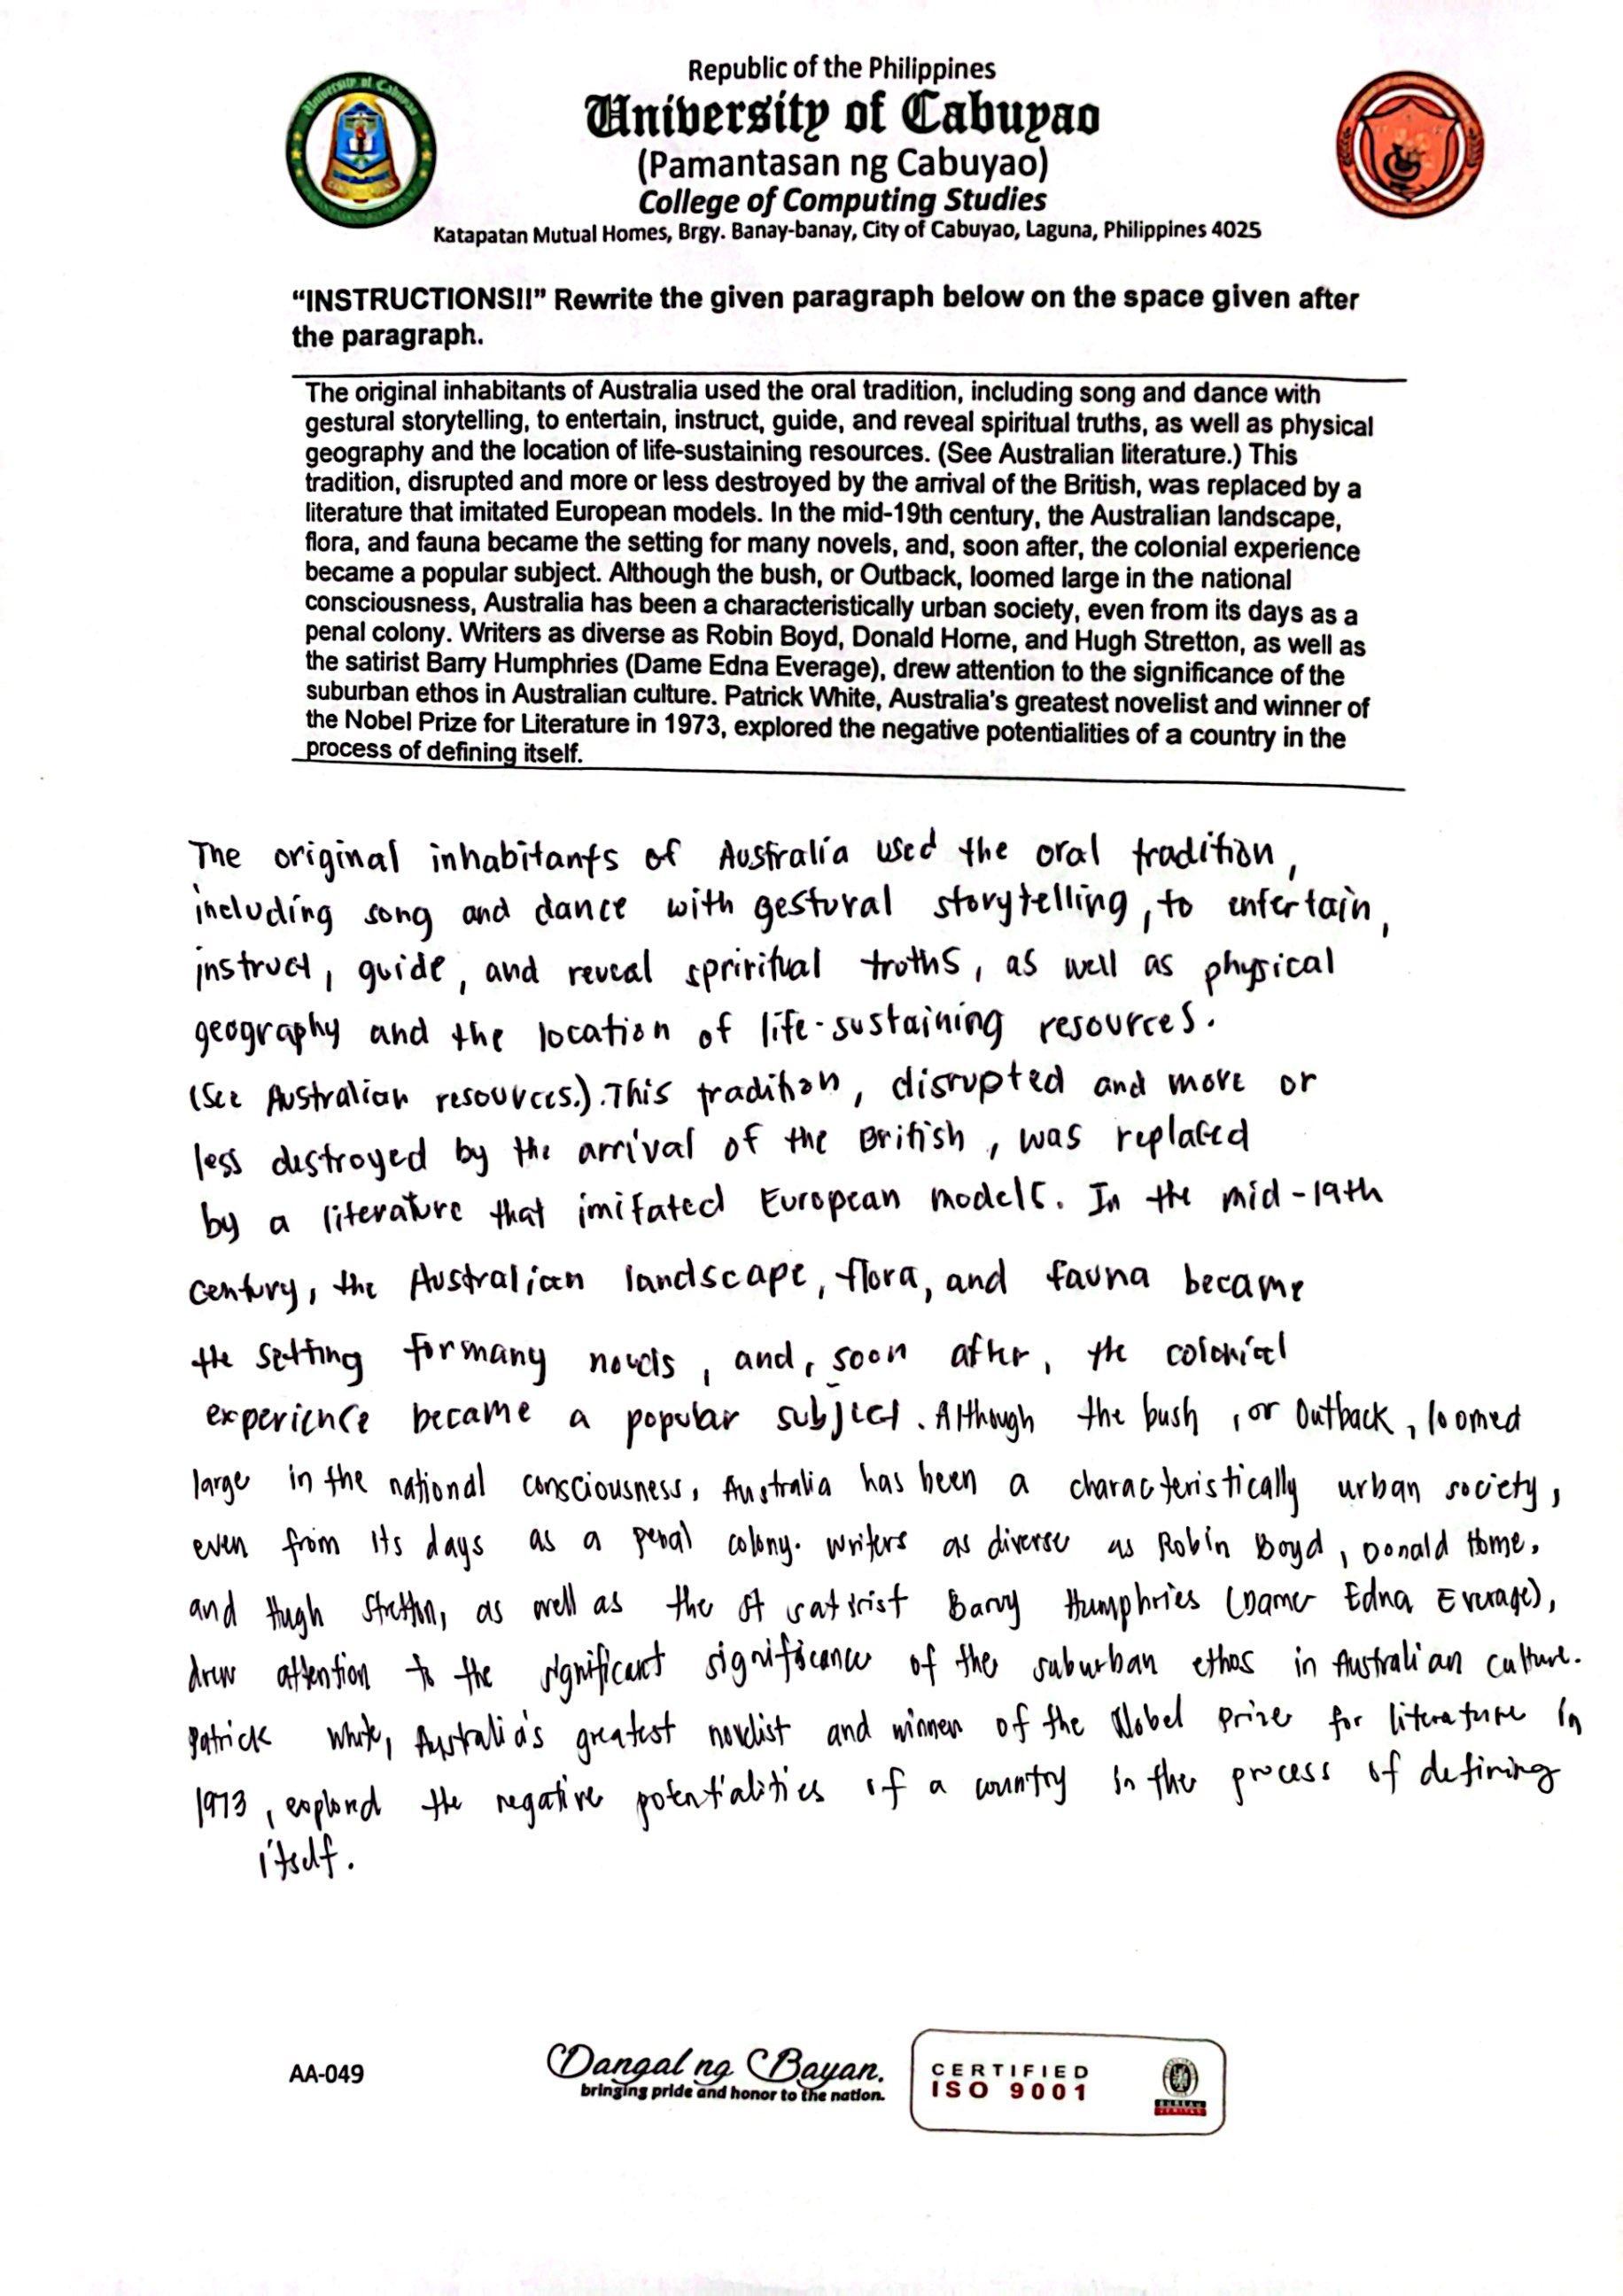 Republic of the Philippines
University of Cabuyao
(Pamantasan ng Cabuyao)
College of Computing Studies
Katapatan Mutual Homes, Brgy. Banay-banay, City of Cabuyao, Laguna, Philippines 4025
“INSTRUCTIONS!!” Rewrite the given paragraph below on the space given after
the paragraph.
The original inhabitants of Australia used the oral tradition, including song and dance with
gestural storytelling, to entertain, instruct, guide, and reveal spiritual truths, as well as physical
geography and the location of life-sustaining resources. (See Australian literature.) This
tradition, disrupted and more or less destroyed by the arrival of the British, was replaced by a
literature that imitated European models. In the mid-19th century, the Australian landscape,
flora, and fauna became the setting for many novels, and, soon after, the colonial experience
became a popular subject. Although the bush, or Outback, loomed large in the national
consciousness, Australia has been a characteristically urban society, even from its days as a
penal colony. Writers as diverse as Robin Boyd, Donald Horne, and Hugh Stretton, as well as
the satirist Barry Humphries (Dame Edna Everage), drew attention to the significance of the
suburban ethos in Australian culture. Patrick White, Australia’s greatest novelist and winner of
the Nobel Prize for Literature in 1973, explored the negative potentialities of a country in the
process of defining itself.
The original inhabitants of Australia used the oral tradition,
including song and dance with gestural storytelling, to entertain,
instruct, guide, and reveal spriritual truths, as well as physical
geography and the location of life-sustaining resources.
(See Australian resources.). This tradition, disrupted and more or
less destroyed by the arrival of the British, was replaced
by a literature that imitated European models. In the mid-19th
century, the Australian landscape, flora, and fauna became
the setting for many novels, and, soon after, the colonial
experience became a popular subject. Although the bush, or Outback, loomed
large in the national consciousness, Australia has been a characteristically urban society,
even from its days as a penal colony. Writers as diverse as Robin Boyd, Donald Home,
and Hugh Stretton, as well as the satirist Barry Humphries (Dame Edna Everage),
drew attention to the significant significance of the suburban ethos in Australian culture.
Patrick White, Australia's greatest novelist and winner of the Nobel prize for literature in
1973, explored the negative potentialities of a country in the process of defining
itself.
AA-049
Dangal ng Bayan.
bringing pride and honor to the nation.
CERTIFIED
ISO 9001